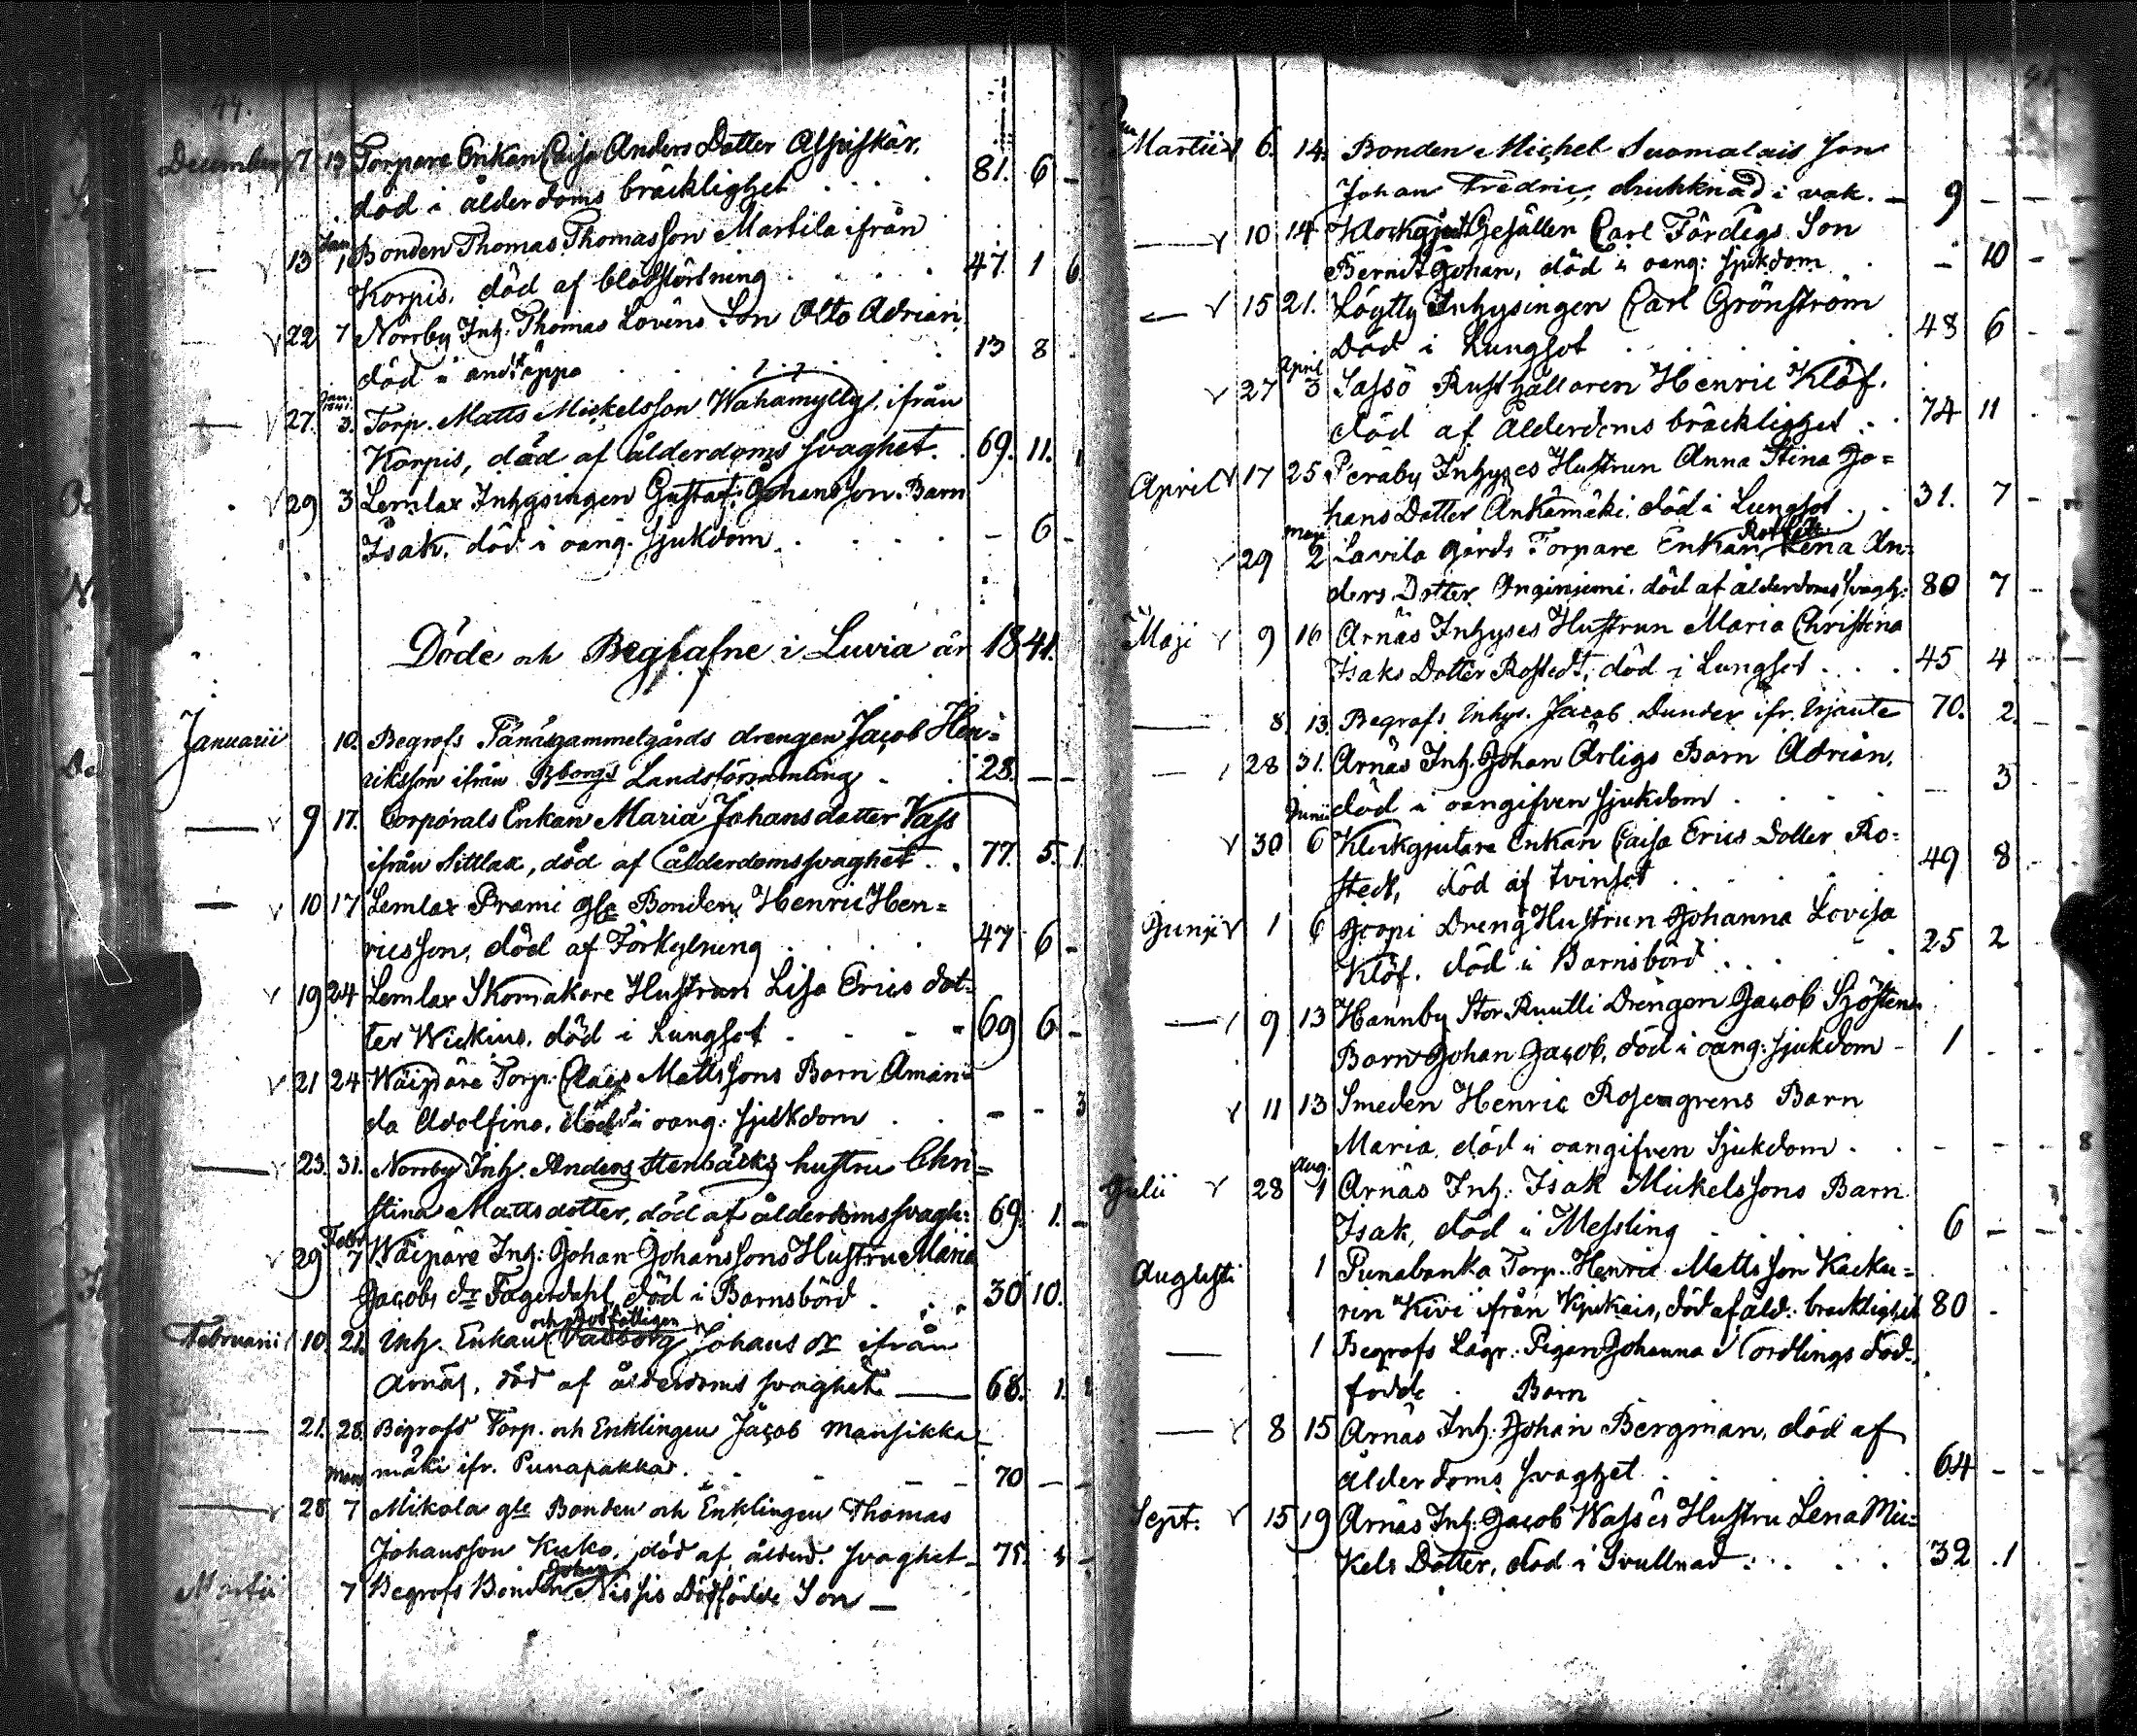 44.
December 7 13 Torpare Enkan Caisa Anders Dotter Aspiskär,
död i ålderdoms bräcklighet 81. 6 -
13 Jan 1 Bonden Thomas Thomasson Martila ifrån
Korpis, död af blodstörtning 47 1 6
22 7 Norrby Inh. Thomas Lovéns Son Otto Adrian,
död i andtäppa 13 8
27. Jan: 1841. 3. Torp. Matts Mickelsson Wahamylly, ifrån
Korpis, död af ålderdoms svaghet. 69. 11.
29 3 Lemlax Inhysingen Gustaf Johansson Barn
Isak, död i oang. sjukdom - 6
Döde och Begrafne i Luvia år 1841.
Januarii 10. Begrofs Pänäsgammelgårds drengen Jacob Hen=
riksson ifrån Bborgs Landsförsamling 28. - -
9 17. Corporals Enkan Maria Johansdotter Vass
ifrån Sittlax, död af ålderdomssvaghet 77. 5. 1.
10 17 Lemlax Prami gla Bonden Henric Hen=
ricsson, död af Förkylning 47 6 -
19 24 Lemlax Skomakare Hustrun Lisa Erics dot=
ter Wickius, död i Lungsot 69 6 -
21 24 Wäipäre Torp. Claes Mattssons Barn Aman=
da Adolfina, död i oang: sjukdom - - 3
23. 31. Norrby Inh. Anders Stenbäcks hustru Chri=
stina Mattsdotter, död af ålderdomssvagh: 69. 1. -
29 Febr 7 Wäipäre Inh: Johan Johanssons Hustru Maria
Jacobs dr Fagerdahl, död i Barnsbörd 30 10.
Februarii 10. 21. Inh. Enkan och Rotfattigen Valborg Johans dr ifrån
Arnäs, död af ålderdoms svaghet 68. 1.
21. 28. Begrofs Torp. och Enklingen Jacob Mansikka=
mäki ifr. Punapakka. 70 - -
28 Mars 7 Mikola gle Bonden och Enklingen Thomas
Johansson Kuko, död af ålderd. svaghet 75.
Martii 7 Begrofs Bonden Johan Nissis Dödfödde Son -
45.
Martii 6. 14. Bonden Michel Suomalais Son
Johan Fredric, druhknad i vak. - 9 - -
10 14 Klockgjut Gesällen Carl Färdigs Son
Berndt Johan, död i oang: sjukdom - 10 -
15 21. Löytty Inhysingen Carl Grönström
död i Lungsot 48 6 -
27 April 3 Sassö Rusthållaren Henric Klöf.
död af Ålderdoms bräcklighet 74 11
April 17 25 Peräby Inhyses Hustrun Anna Stina Jo=
hans Dotter Ankämäki, död i Lungsot 31. 7 -
29 Maji 2 Lavila gårds Torpare Enkan Lena An=
ders Dotter Inginiemi, död af ålderdoms svagh: 80 7
Maji 9 16 Arnäs Inhyses Hustrun Maria Christina
Isaks Dotter Rostedt, död i Lungsot 45 4
8 13. Begrofs Inhys. Jacob Dunder ifr. 70. 2.
28 31. Arnäs Inh. Johan Ärligs Barn Adrian,
död i oangifven sjukdom - 3
30 Junii 6 Klockgjutare Enkan Caisa Erics Dotter Ro=
stedt, död af tvinsot 49 8
Junii 1 6 Joopi Dreng Hustrun Johanna Lovisa
Klöf, död i Barnsbörd 25 2
9 13 Hannby Stor Ruutti Drengen Jacob Sjöstens
Barn Johan Jacob, död i oang: sjukdom - 1 - -
11 13 Smeden Henric Rosengrens Barn
Maria, död i oangifven Sjukdom - - 8
Julii 28 Aug. 1 Arnäs Inh: Isak Mickelssons Barn
Isak, död i Messling 6 - -
Augusti 1 Punabanka Torp. Henric Mattsson Kacku=
rin Kivi ifrån Kjukais, död af åld: bracklighet 80 -
1 Begrofs Lägr: Pigan Johanna Nordlings död=
födde Barn
8 15 Arnäs Inh: Johan Bergman, död af
ålderdoms svaghet 64 - -
Sept. 15 19 Arnäs Inh: Jacob Wass's Hustru Lena Mic=
kels Dotter, död i Svullnad 32 1